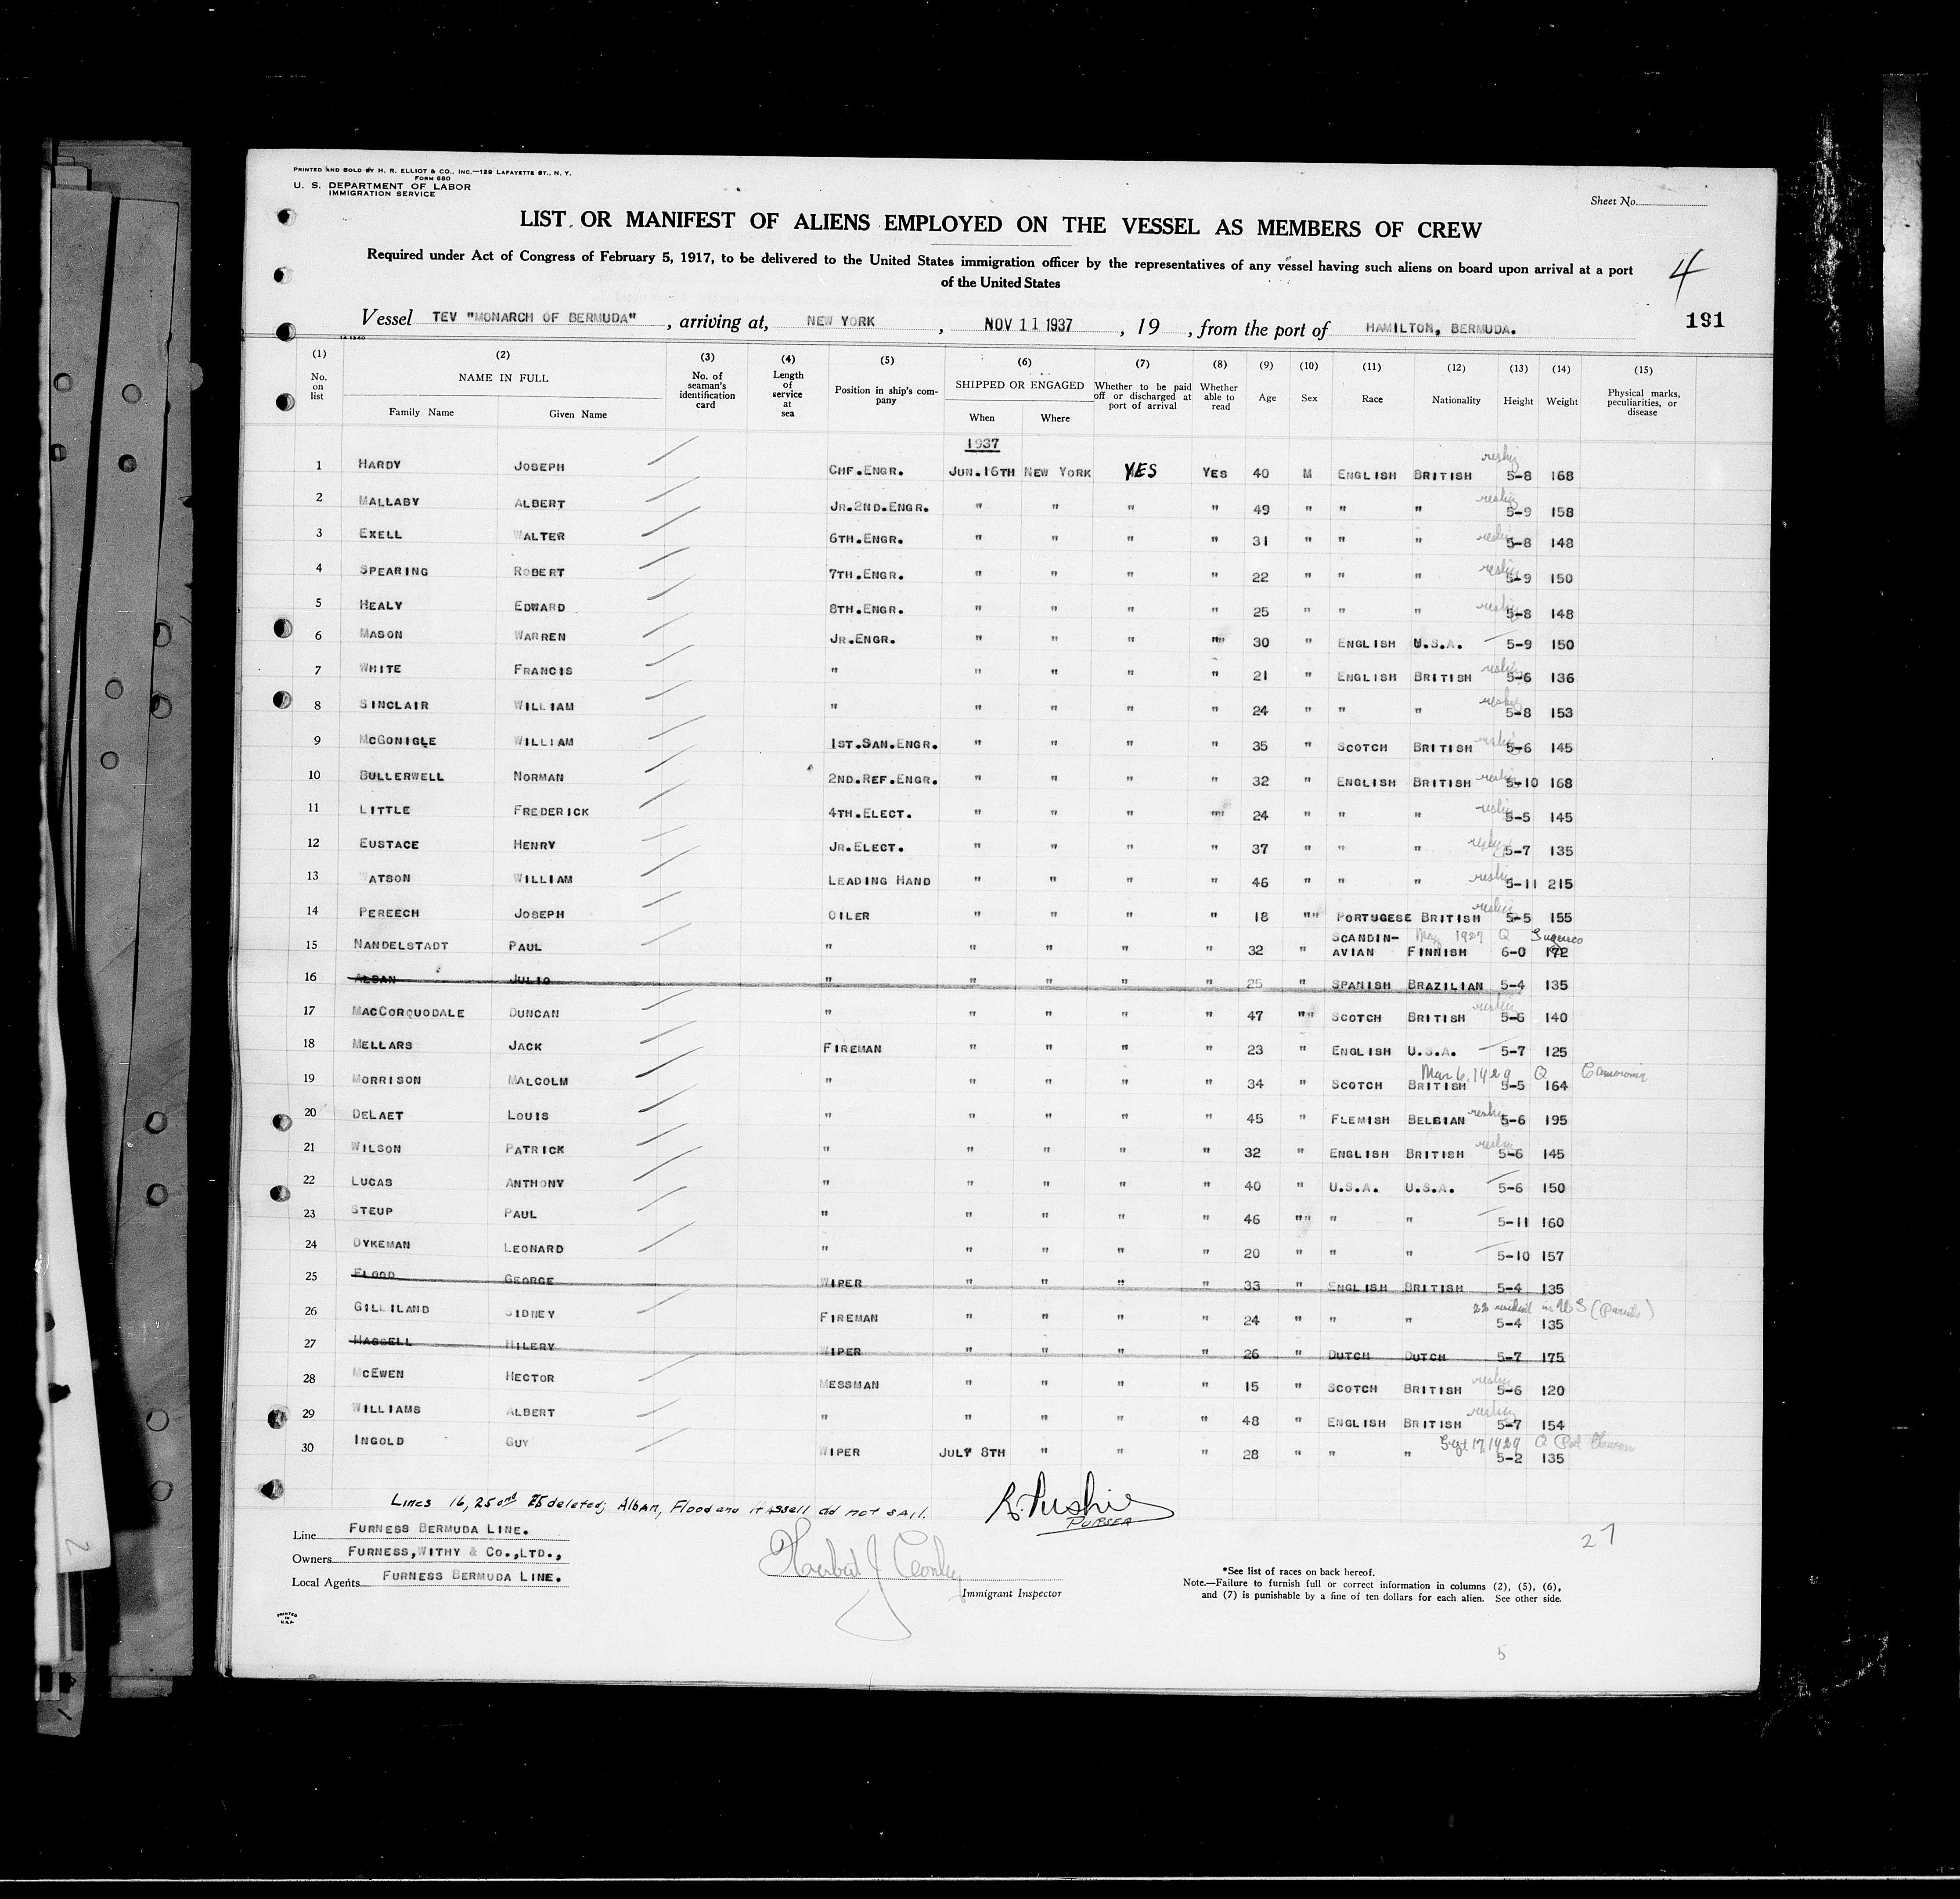 PRINTED AND SOLD BY H. R. ELLIOT & CO., INC.—129 LAFAYETTE ST., N. Y.
FORM 680
U. S. DEPARTMENT OF LABOR
IMMIGRATION SERVICE
Sheet No.
LIST OR MANIFEST OF ALIENS EMPLOYED ON THE VESSEL AS MEMBERS OF CREW
Required under Act of Congress of February 5, 1917, to be delivered to the United States immigration officer by the representatives of any vessel having such aliens on board upon arrival at a port
of the United States
4
Vessel TEV "MONARCH OF BERMUDA" , arriving at, NEW YORK , NOV 11 1937 , 19 , from the port of HAMILTON, BERMUDA.
191
(1) (2) (3) (4) (5) (6) (7) (8) (9) (10) (11) (12) (13) (14) (15)
No. on list NAME IN FULL Family Name Given Name No. of seaman's identification card Length of service at sea Position in ship's company SHIPPED OR ENGAGED When Where Whether to be paid off or discharged at port of arrival Whether able to read Age Sex Race Nationality Height Weight Physical marks, peculiarities, or disease
1937
1 HARDY JOSEPH CHF.ENGR. JUN.16TH NEW YORK YES YES 40 M ENGLISH BRITISH 5-8 168
2 MALLABY ALBERT JR.2ND.ENGR. " " " " 49 " " " 5-9 158
3 EXELL WALTER 6TH.ENGR. " " " " 31 " " " 5-8 148
4 SPEARING ROBERT 7TH.ENGR. " " " " 22 " " " 5-9 150
5 HEALY EDWARD 8TH.ENGR. " " " " 25 " " " 5-8 148
6 MASON WARREN JR.ENGR. " " " "" 30 " ENGLISH U.S.A. 5-9 150
7 WHITE FRANCIS " " " " " 21 " ENGLISH BRITISH 5-6 136
8 SINCLAIR WILLIAM " " " " " 24 " " " 5-8 153
9 MCGONIGLE WILLIAM 1ST.SAN.ENGR. " " " " 35 " SCOTCH BRITISH 5-6 145
10 BULLERWELL NORMAN 2ND.REF.ENGR. " " " " 32 " ENGLISH BRITISH 5-10 168
11 LITTLE FREDERICK 4TH.ELECT. " " " "" 24 " " " 5-5 145
12 EUSTACE HENRY JR.ELECT. " " " " 37 " " " 5-7 135
13 WATSON WILLIAM LEADING HAND " " " " 46 " " " 5-11 215
14 PEREECH JOSEPH OILER " " " " 18 "" PORTUGESE BRITISH 5-5 155
15 NANDELSTADT PAUL " " " " " 32 " SCANDIN-AVIAN FINNISH May 1927 Q 6-0 172
16 ALBAN JULIO " " " " " 25 " SPANISH BRAZILIAN 5-4 135
17 MACCORQUODALE DUNCAN " " " " " 47 "" SCOTCH BRITISH 5-6 140
18 MELLARS JACK FIREMAN " " " " 23 " ENGLISH U.S.A. 5-7 125
19 MORRISON MALCOLM " " " " " 34 " SCOTCH BRITISH Mar 6, 1929 Q 5-5 164
20 DELAET LOUIS " " " " " 45 " FLEMISH BELGIAN 5-6 195
21 WILSON PATRICK " " " " " 32 " ENGLISH BRITISH 5-6 145
22 LUCAS ANTHONY " " " " " 40 " U.S.A. U.S.A. 5-6 150
23 STEUP PAUL " " " " " 46 "" " " 5-11 160
24 DYKEMAN LEONARD " " " " " 20 " " " 5-10 157
25 FLOOD GEORGE WIPER " " " " 33 " ENGLISH BRITISH 5-4 135
26 GILLILAND SIDNEY FIREMAN " " " " 24 " " " in US (Parents) 5-4 135
27 HASSELL HILERY WIPER " " " " 26 " DUTCH DUTCH 5-7 175
28 MCEWEN HECTOR MESSMAN " " " " 15 " SCOTCH BRITISH 5-6 120
29 WILLIAMS ALBERT " " " " " 48 " ENGLISH BRITISH 5-7 154
30 INGOLD GUY WIPER JULY 8TH " " " 28 " " " Sept 17, 1929 Q 5-2 135
Lines 16, 25 and deleted; Alban, Flood and Hassell did not sail.
PURSER
Line FURNESS BERMUDA LINE.
Owners FURNESS, WITHY & CO., LTD.,
Local Agents FURNESS BERMUDA LINE.
Herbert J Conley
Immigrant Inspector
27
*See list of races on back hereof.
Note.—Failure to furnish full or correct information in columns (2), (5), (6),
and (7) is punishable by a fine of ten dollars for each alien. See other side.
PRINTED
IN
U.S.A.
5